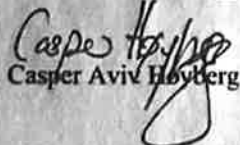 Casper Høyberg
Casper Aviv Høyberg